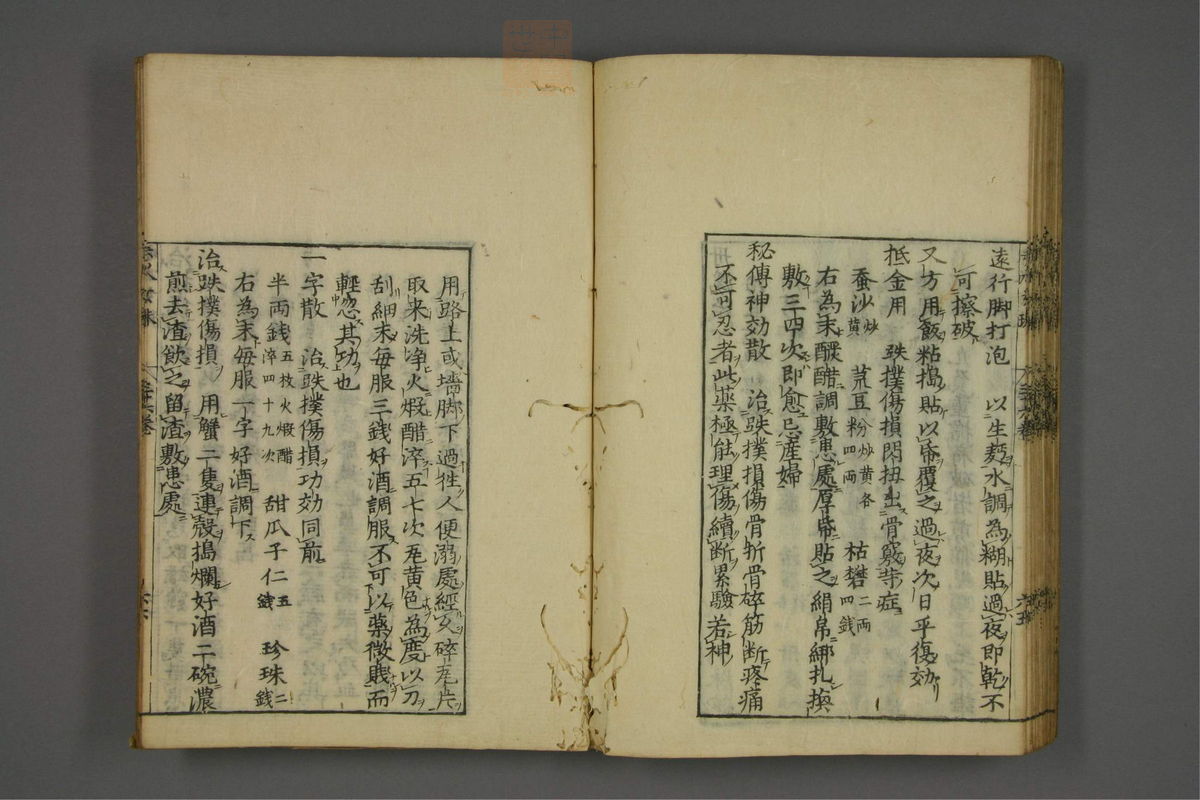 遠行脚打泡　以生麪水調為糊貼過夜即乾不
可擦破
又方用飯粘搗貼以帋覆之過夜次日平復効
抵金用　跌撲傷損閃扭出骨竅等症
蚕沙炒黄　菉豆粉炒黄各四両　枯礬二両四銭
右為末釅醋調敷患處厚帋貼之絹帛綁扎換
敷三四次即愈忌産婦
秘傳神効散　治跌撲損傷骨折骨碎筋斷疼痛
不可忍者此藥極能理傷續斷累驗若神
用路上或墻脚下過徃人便溺處經久碎瓦片
取来洗浄火煅醋淬五七次瓦黄色為度以刀
刮細末毎服三銭好酒調服不可以藥微賎而
輕忽其功也
一字散　治跌撲傷損功効同前
半両銭五枚火煅醋淬四十九次　甜瓜子仁五銭　珍珠二銭
右為末毎服一字好酒調下
治跌撲傷損　用蟹二隻連殻搗爛好酒二碗濃
煎去渣飲之留渣敷患處